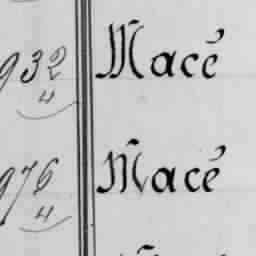 932 Macé
"
976 Macé
"